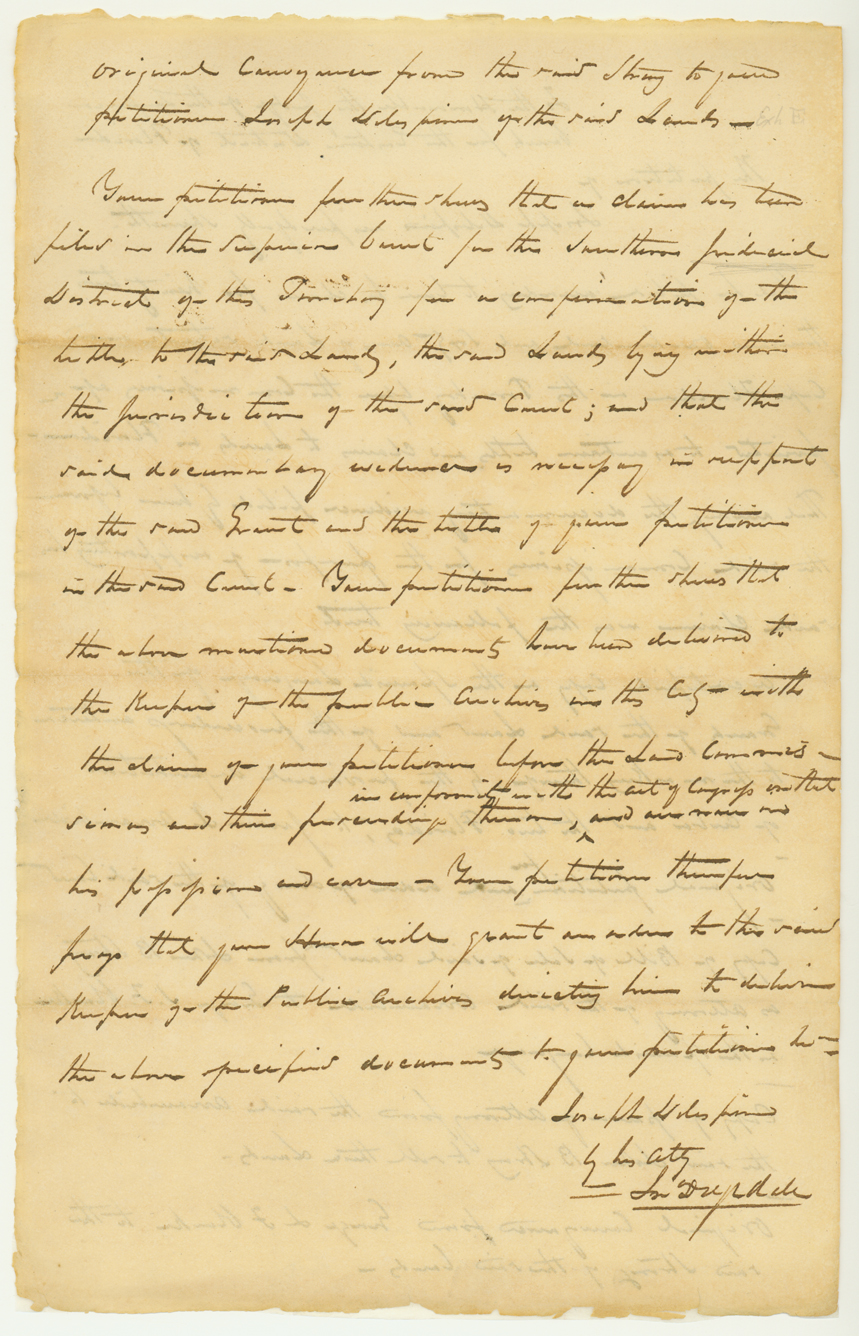 original Conveyance from the said Strong to your
petitioner Joseph Delespine of the said Lands —
Your petitioner further shews that a claim has been
filed in the Superior Court for the Southern Judicial
District of this Territory for a confirmation of the
title to the said Lands, the said Lands lying within
the jurisdiction of the said Court; and that the
said documentary evidence is necessary in support
of the said Grant and the title of your petitioner
in the said Court — Your petitioner further shews that
the above mentioned documents have been delivered to
the Keeper of the public Archives in this City with
the claim of your petitioner before the Land Commis-
in conformity with the act of Congress in that
sioners and their proceedings thereon, and are now in
his possession and care — Your petitioner therefore
prays that your Honor will grant an order to the said
Keeper of the Public Archives directing him to deliver
the above specified documents to your petitioner
Joseph Delespine
by his Atty
Jno Drysdale